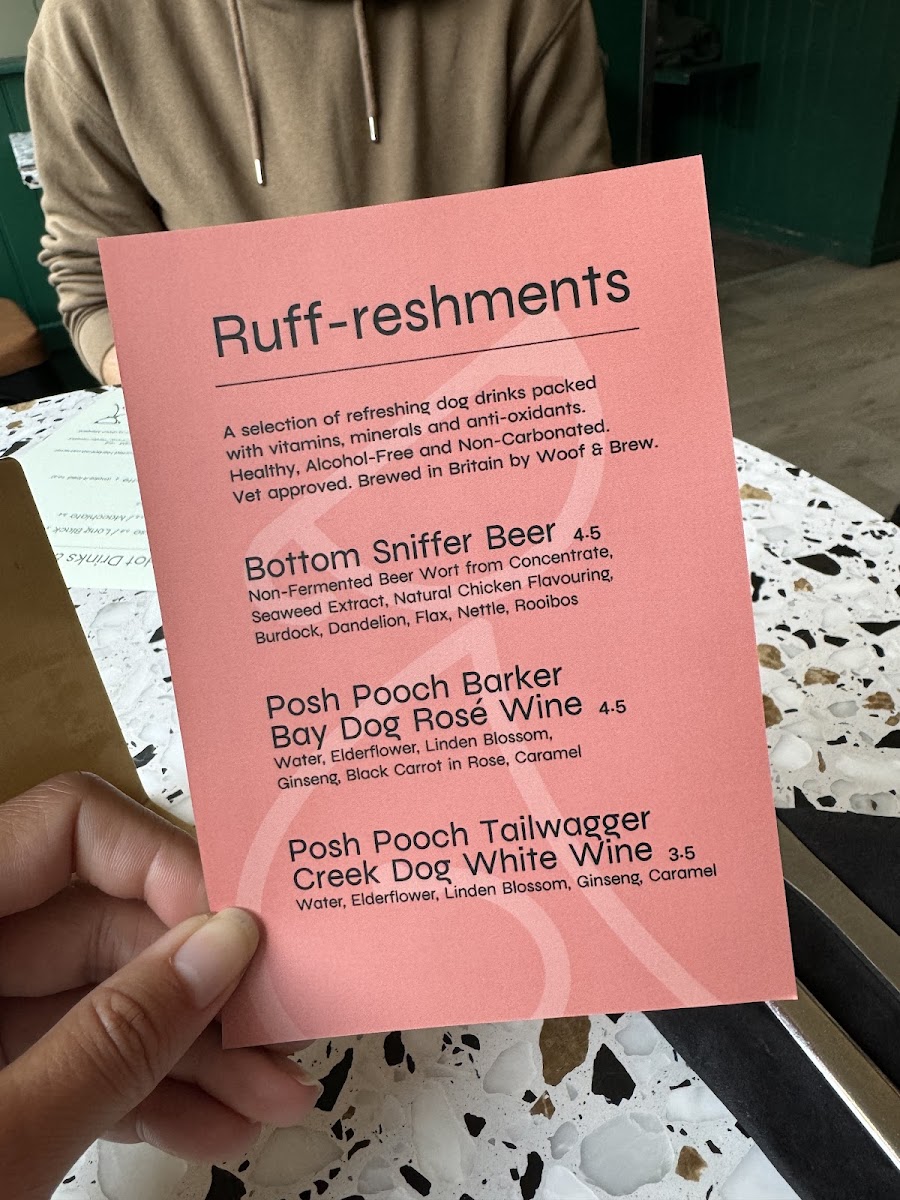 Ruff-reshments
A selection of refreshing dog drinks packed
with vitamins, minerals and anti-oxidants.
Healthy, Alcohol-Free and Non-Carbonated.
Vet approved. Brewed in Britain by Woof & Brew.
Bottom Sniffer Beer 4.5
Non-Fermented Beer Wort from Concentrate,
Seaweed Extract, Natural Chicken Flavouring,
Burdock, Dandelion, Flax, Nettle, Rooibos
Posh Pooch Barker
Bay Dog Rosé Wine 4.5
Water, Elderflower, Linden Blossom,
Ginseng, Black Carrot in Rose, Caramel
Posh Pooch Tailwagger
Creek Dog White Wine 3.5
Water, Elderflower, Linden Blossom, Ginseng, Caramel
Drinks
/ Long Black
/ Macchiato